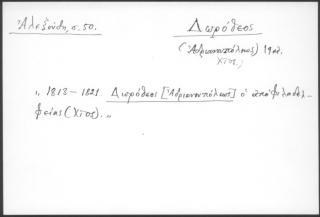 Ἀλεξούδη, σ. 50.
Δωρόθεος
(Ἀδριανουπόλεως) 19 αι.
Χῖος;
„ 1813-1821. Δωρόθεος [Ἀδριανουπόλεως] ὁ ἀπὸ Φιλαδελ-
φείας (Χῖος). „